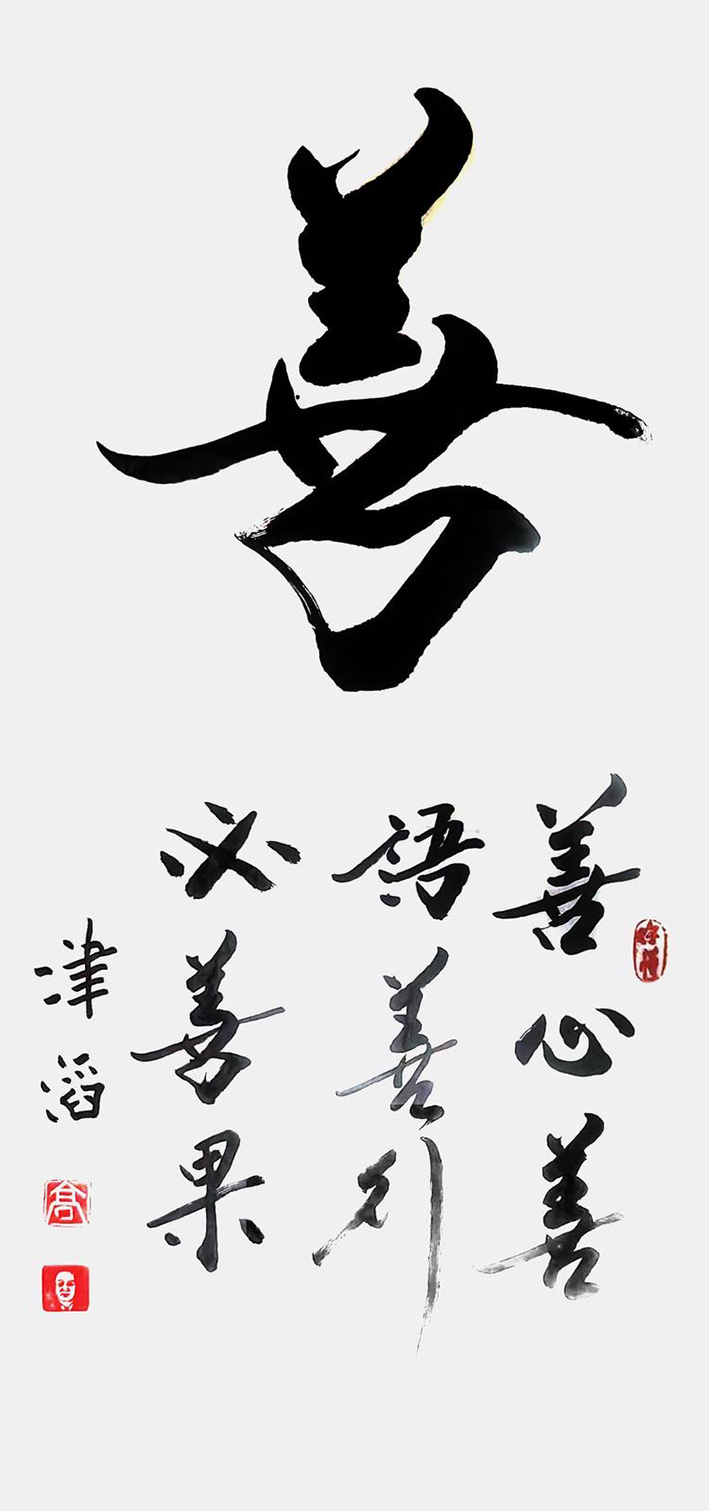 善
善心善
語善行
必善果
津滔
高